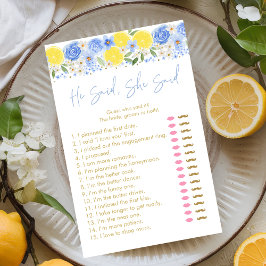 He Said, She Said
Guess who said it!
The bride, groom or both!
1. I planned the first date.
2. I said I love you first.
3. I picked out the engagement ring.
4. I proposed.
5. I am more romantic.
6. I'm planning the honeymoon.
7. I'm the better cook.
8. I'm the better dancer.
9. I'm the funny one.
10. I'm the better driver.
11. I initiated the first kiss.
12. I take longer to get ready.
13. I'm the neat one.
14. I'm the more patient.
15. I love to travel more.